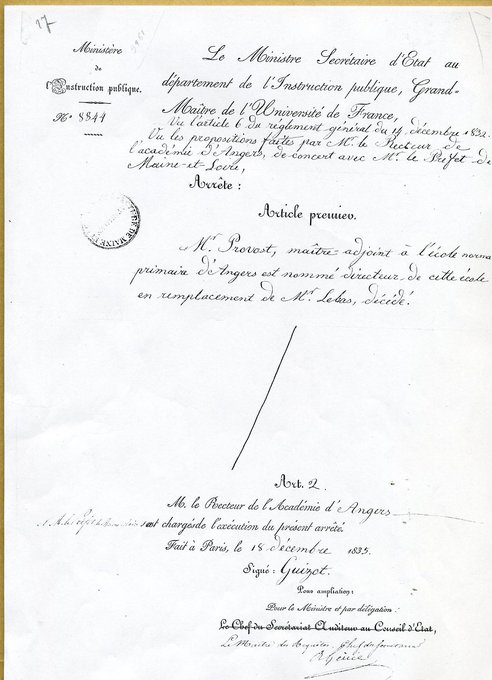 17
Ministère
de
l'Instruction publique.
N° 8844
Le Ministre Secrétaire d'Etat au
département de l'Instruction publique, Grand-
Maître de l'Université de France,
Vu l'article 6 du règlement général du 14 décembre 1832.
Vu les propositions faites par Mr. le Recteur de
l'académie d'Angers, de concert avec Mr. le Préfet de
Maine-et-Loire,
Arrête :
Article premier.
DE MAINE
Mr. Provost, maître adjoint à l'école norma
primaire d'Angers est nommé directeur de cette école
en remplacement de Mr. Lebas, décédé.
Art. 2
M. le Recteur de l'Académie d'Angers
et M. le Préfet de sont chargés de l'exécution du présent arrêté.
Fait à Paris, le 18 décembre 1835.
Signé : Guizot.
Pour ampliation :
Pour le Ministre et par délégation :
Le Chef du Secrétariat Auditeur au Conseil d'Etat,
Le Maître des Requêtes, Chef du